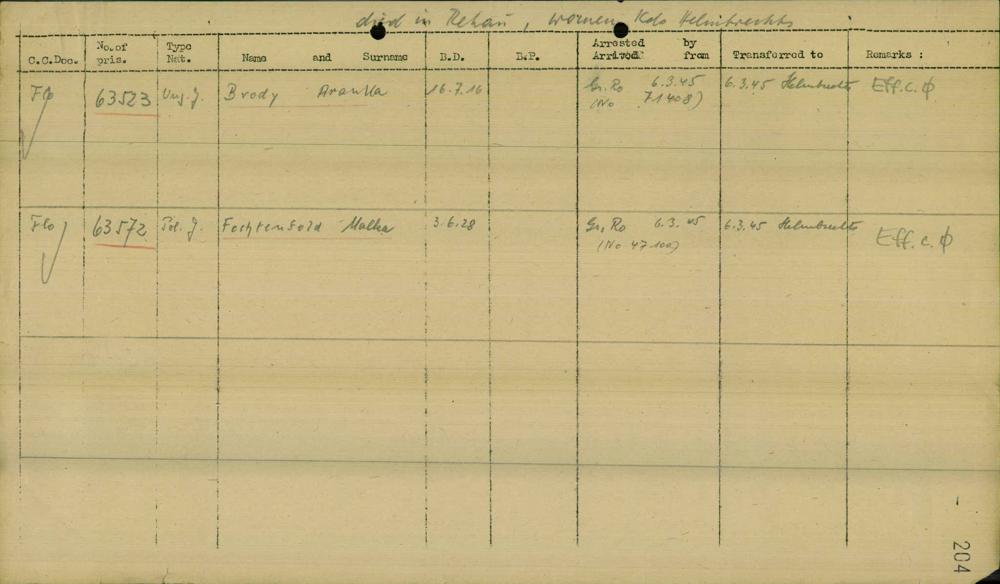 died in Rehau, women Kdo Helmbrechts
C.C.Doc. No. of pris. Type Nat. Name and Surname B.D. B.P. Arrested by Arrived from Transferred to Remarks :
63523 Ung. J. Brody Aranka 16.7.16 Gr. Ro 6.3.45 6.3.45 Helmbrechts Eff. c. ϕ
(No 71408)
Flo 63572 Pol. J. Malka 3.6.28 Gr. Ro 6.3.45 6.3.45 Helmbrechts Eff. c. ϕ
(No 47100)
204